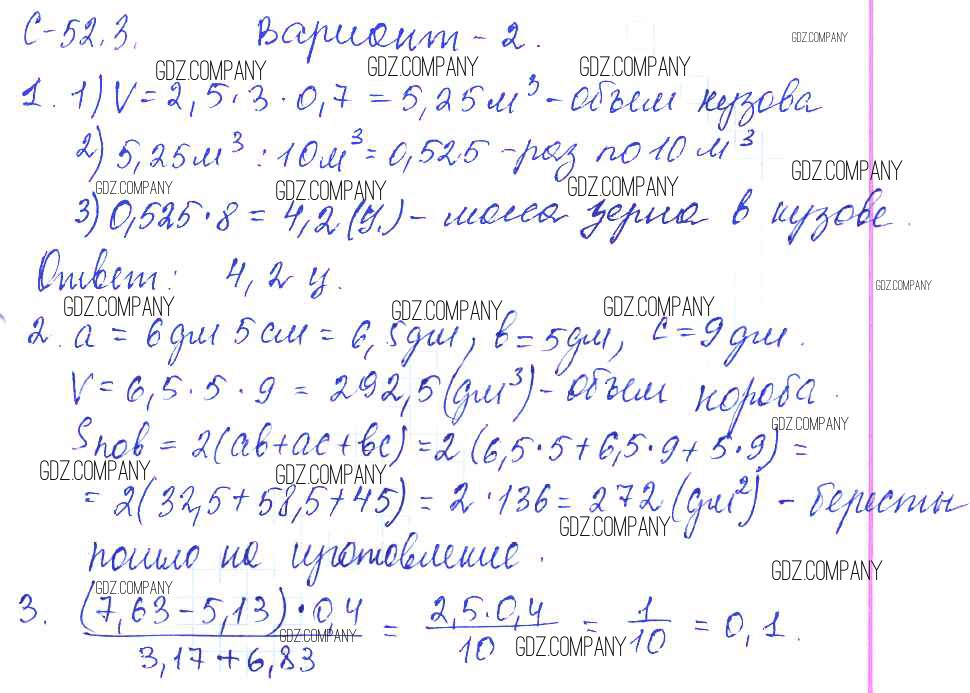 С-52.3. Вариант - 2.
GDZ.COMPANY
GDZ.COMPANY GDZ.COMPANY GDZ.COMPANY
1. 1) V = 2,5 · 3 · 0,7 = 5,25 м³ - объем кузова
2) 5,25 м³ : 10 м³ = 0,525 - раз по 10 м³
GDZ.COMPANY
GDZ.COMPANY GDZ.COMPANY GDZ.COMPANY
3) 0,525 · 8 = 4,2 (ц) - масса зерна в кузове.
Ответ: 4,2 ц.
GDZ.COMPANY
GDZ.COMPANY GDZ.COMPANY GDZ.COMPANY
2. a = 6 дм 5 см = 6,5 дм, b = 5 дм, c = 9 дм.
V = 6,5 · 5 · 9 = 292,5 (дм³) - объем короба.
GDZ.COMPANY
Sпов = 2(ab + ac + bc) = 2 (6,5 · 5 + 6,5 · 9 + 5 · 9) =
GDZ.COMPANY GDZ.COMPANY
= 2(32,5 + 58,5 + 45) = 2 · 136 = 272 (дм²) - бересты
GDZ.COMPANY
пошло на изготовление.
GDZ.COMPANY
GDZ.COMPANY
3. (7,63 - 5,13) · 0,4 / 3,17 + 6,83 = 2,5 · 0,4 / 10 = 1 / 10 = 0,1.
GDZ.COMPANY GDZ.COMPANY